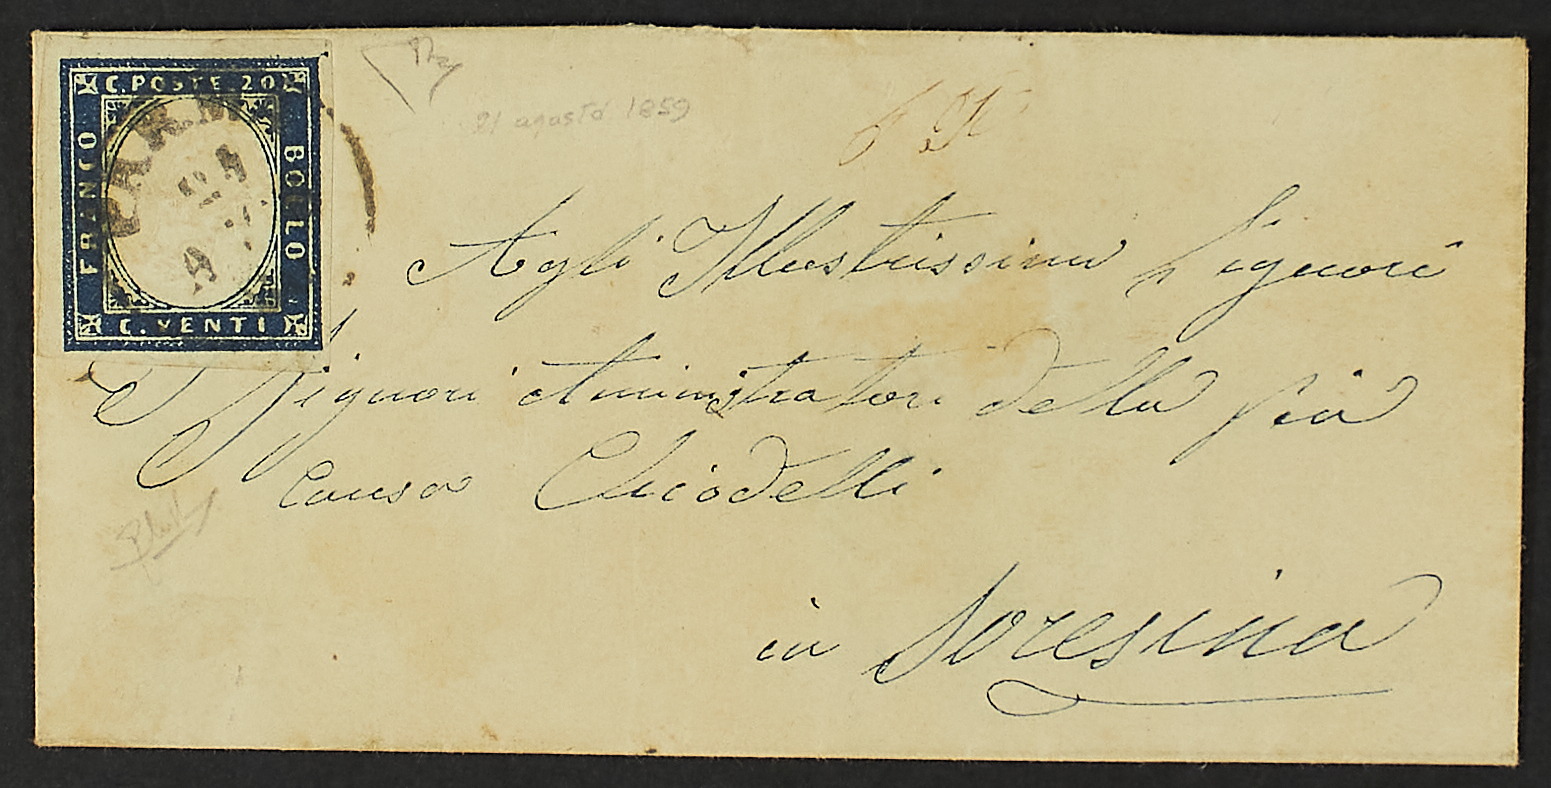 C. POSTE 20
FRANCO
BOLLO
C. VENTI
PARM
21
21 agosto 1859
Agli Illustrissimi Signori
Signori Aministratori della pia
Causa Chiodelli
in Soresina